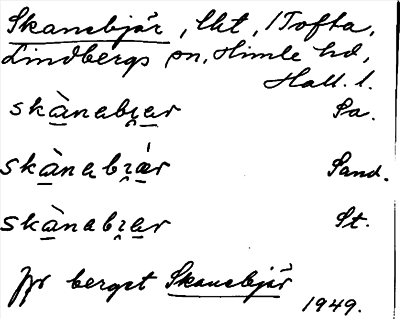 Skansbjär, lht, i Tofta,
Lindbergs sn, Himle hd,
Hall. l.
skànabɪ̯ar Pa.
skànabɪ̯ár Sand.
skànabɪ̯ar St.
jfr berget Skansbjär
1949.